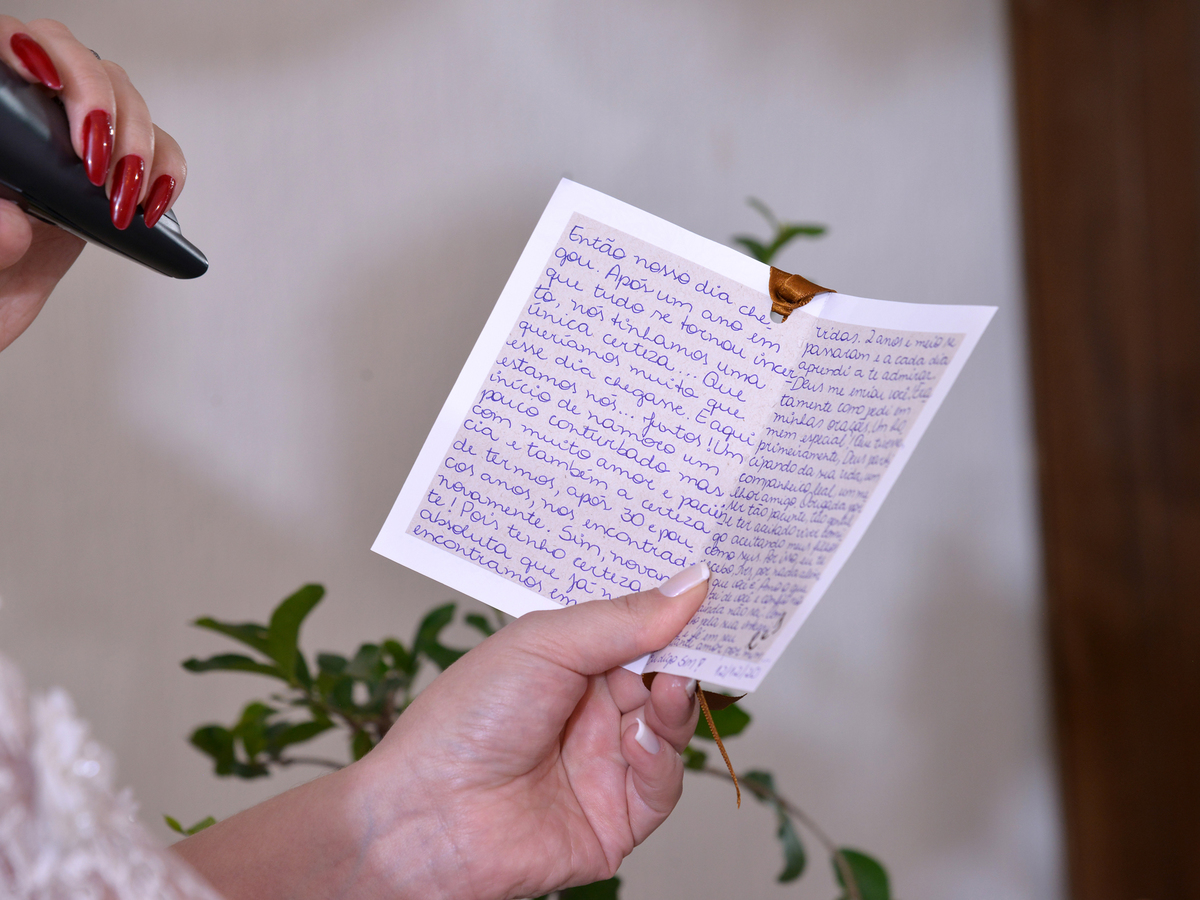 Então nosso dia che
gou. Após um ano em
que tudo se tornou incer-
to, nós tínhamos uma
única certeza... Que
queríamos muito que
esse dia chegasse. E aqui
estamos nós... Juntos! Um
início de namoro um
pouco conturbado mas
com muito amor e paciên
cia e também a certeza
de termos, após 30 e pou-
cos anos, nos encontrad
novamente. Sim, novam
te! Pois tenho certeza
absoluta que já n
encontramos em
vidas. 2 anos e meio se
passaram e a cada dia
aprendi a te admirar
Deus me enviou você. Exa
tamente como pedi em
minhas orações. Um ho
mem especial! Que
primeiramente, Deus
cipando da sua vida, um
companheiro leal, um me
lhor amigo. Obrigada por
ser tão paciente, tão gentil
e ter aceitado viver comi
go aceitando meus filhos
como seus. Por isso, eu te
que você é
digo Sim!
12/12/20